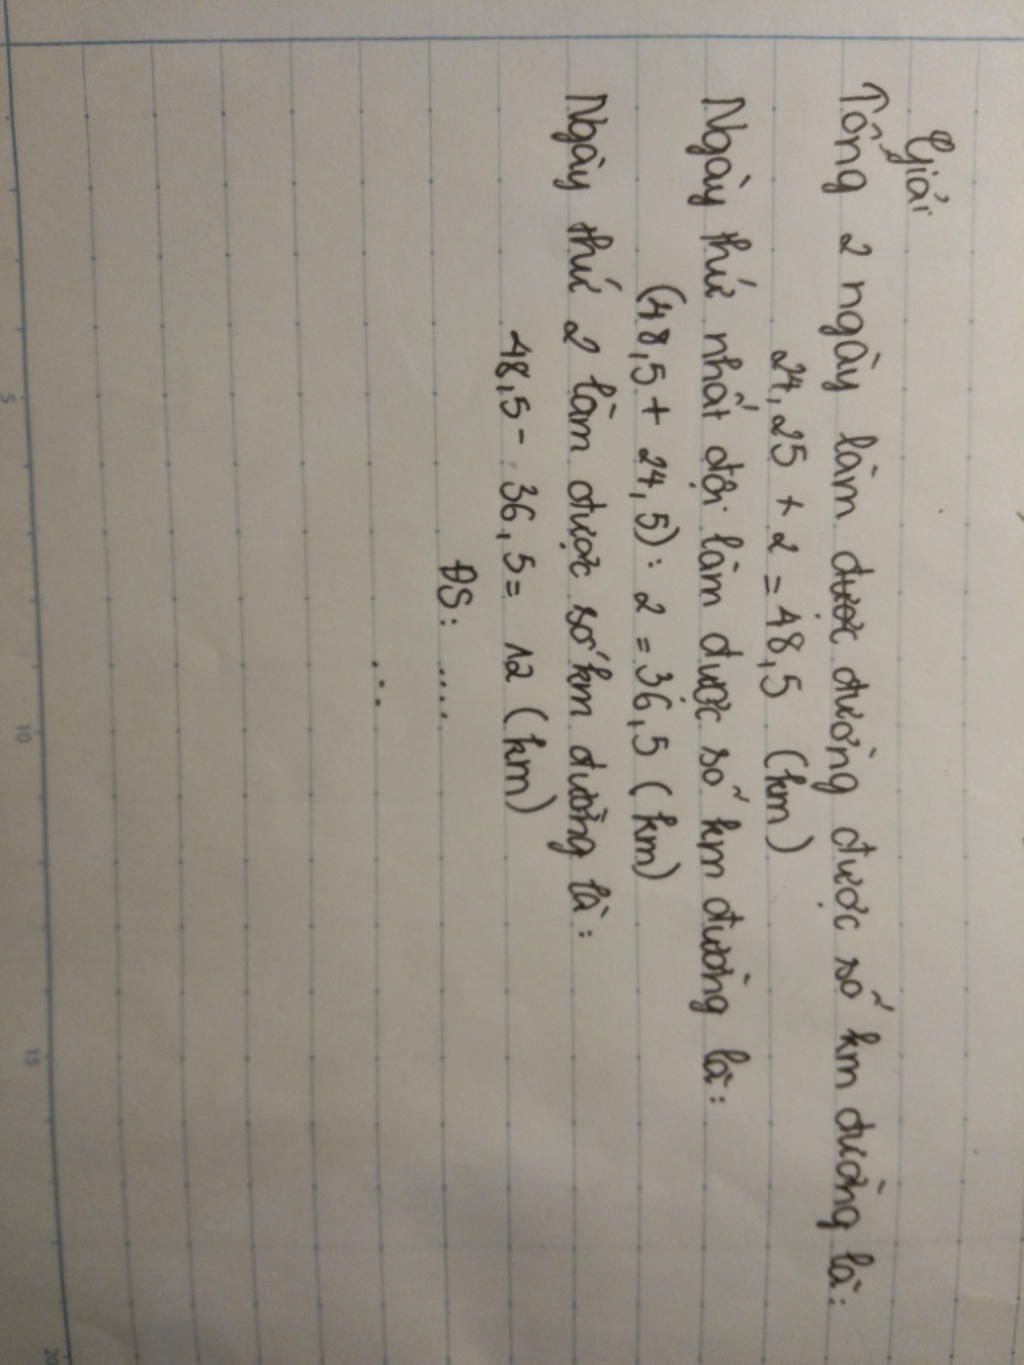 Giải
Tổng 2 ngày làm được đường được số km đường là:
24,25 + 2 = 48,5 (km)
Ngày thứ nhất đội làm được số km đường là:
(48,5 + 24,5) : 2 = 36,5 (km)
Ngày thứ 2 làm được số km đường là:
48,5 - 36,5 = 12 (km)
ĐS: .....
5
10
15
20